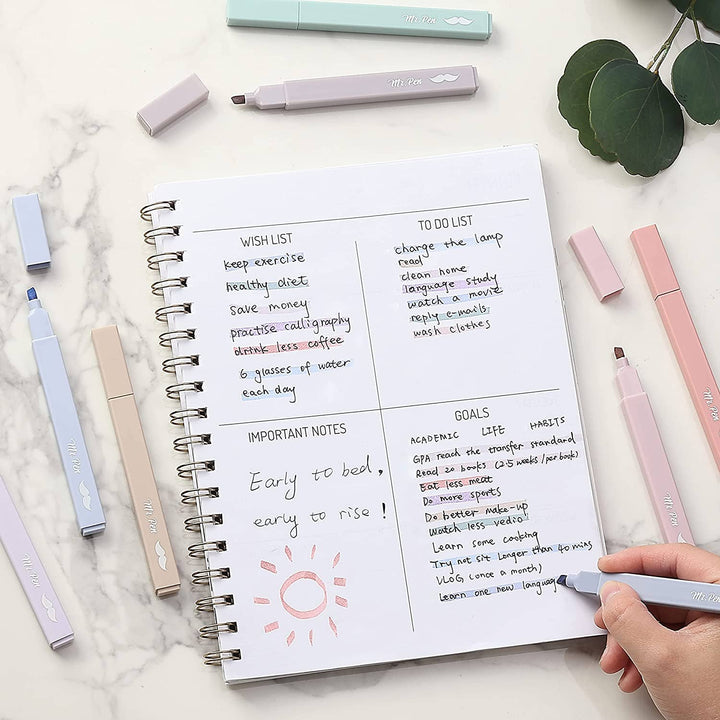 Mr. Pen
Mr. Pen
WISH LIST
keep exercise
healthy diet
save money
practise calligraphy
drink less coffee
6 glasses of water
each day
TO DO LIST
charge the lamp
read
clean home
language study
watch a movie
reply e-mails
wash clothes
IMPORTANT NOTES
Early to bed,
early to rise !
GOALS
ACADEMIC LIFE HABITS
GPA reach the transfer standard
Read 20 books (2.5 weeks / per book)
Eat less meat
Do more sports
Do better make-up
Watch less vedio
Learn some cooking
Try not sit longer than 40 mins
VLOG (once a month)
Learn one new languag
Mr. Pen
Mr. Pen
Mr. Pen
Mr. Pen
Mr. Pen
Mr. Pen